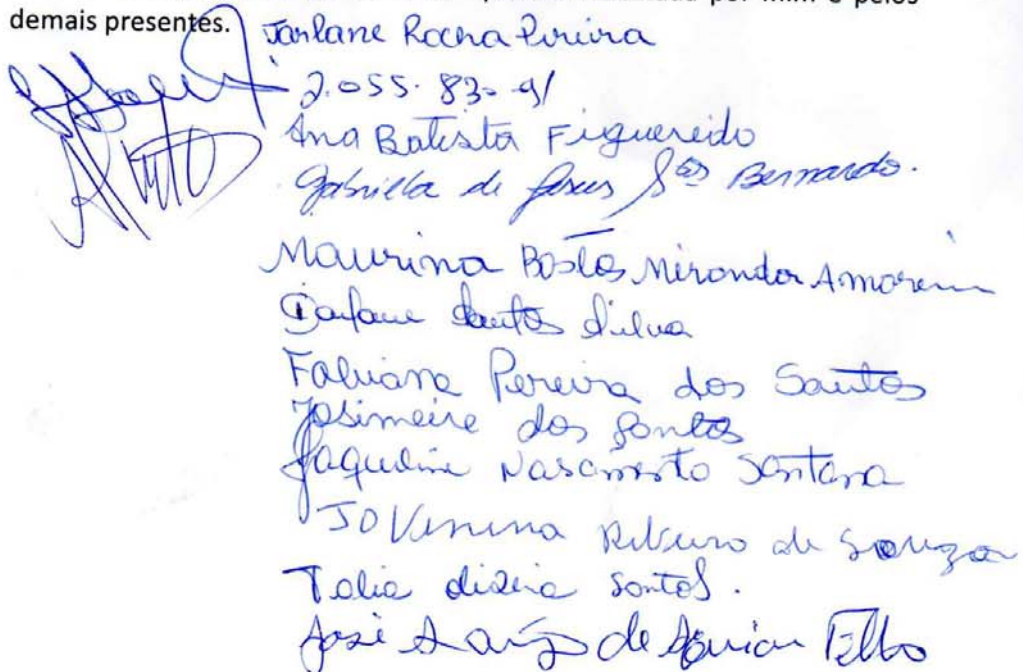 por mim e pelos
demais presentes.
Jarlane Rocha Pereira
2.055.83-91
Ana Batista Figueredo
Gabriella de Jesus Stos Bernardo.
Maurina Bastos Miranda Amorim
Santos Silva
Fabiana Pereira dos Santos
Josimeire dos Santos
Jaqueline Nascimento Santana
JOVENINA Ribeiro de Souza
Santos.
José Araújo de Filho